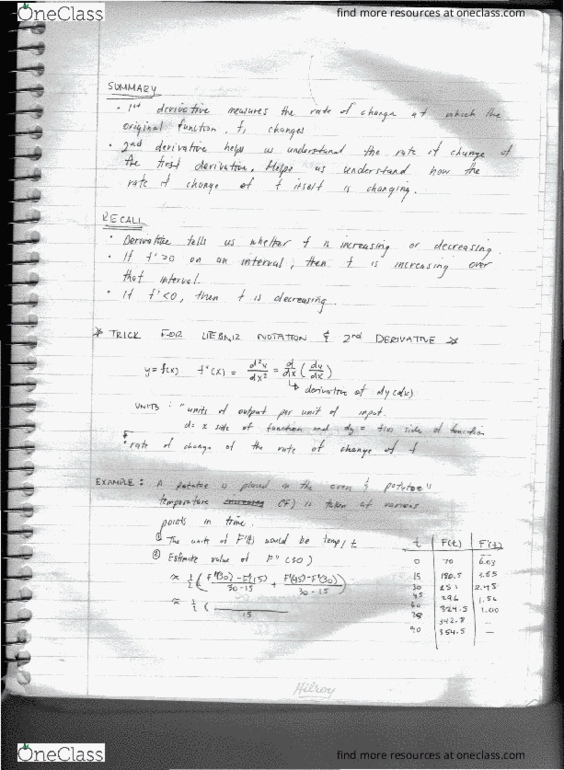 OneClass
find more resources at oneclass.com
SUMMARY
· 1st derivative measures the rate of change at which the
original function, f, changes
· 2nd derivative helps us understand the rate of change of
the first derivation, Helps us understand how the
rate of change of f itself is changing.
RECALL
· Derivative tells us whether f is increasing or decreasing.
· If f' > 0 on an interval, then f is increasing over
that interval.
· if f' < 0, then f is decreasing.
* TRICK FOR LIEBNIZ NOTATION & 2nd DERIVATIVE *
y = f(x) f''(x) = d²y/dx² = d/dx (dy/dx)
↳ derivative of dy/dx
UNITS: "units of output per unit of input.
d = x side of function and dy = side of function
rate of change of the rate of change of f
EXAMPLE: A potatoe is placed in the oven & potatoe's
temperature (F) is taken at various
points in time.
① The units of F'(t) would be temp/t
② Estimate value of F''(30)
≈ 1/2 ( F'(30) - F'(15) / 30-15 + F'(45) - F'(30) / 30-15 )
≈ 1/2 ( / 15
t F(t) F'(t)
0 70 6.03
15 180.5 3.85
30 251 2.45
45 296 1.56
60 324.5 1.00
75 342.8 —
90 354.5 —
Hilroy
OneClass
find more resources at oneclass.com